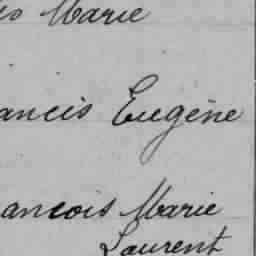 is Marie
ancis Eugène
ancois Marie
Laurent